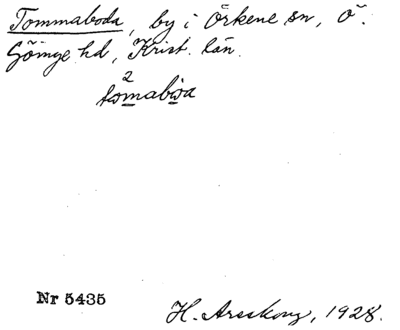 Tommaboda, by i Örkene sn, Ö.
Göinge hd, Krist. län.
2
tomaboa
Nr 5435
H. Areskog, 1928.